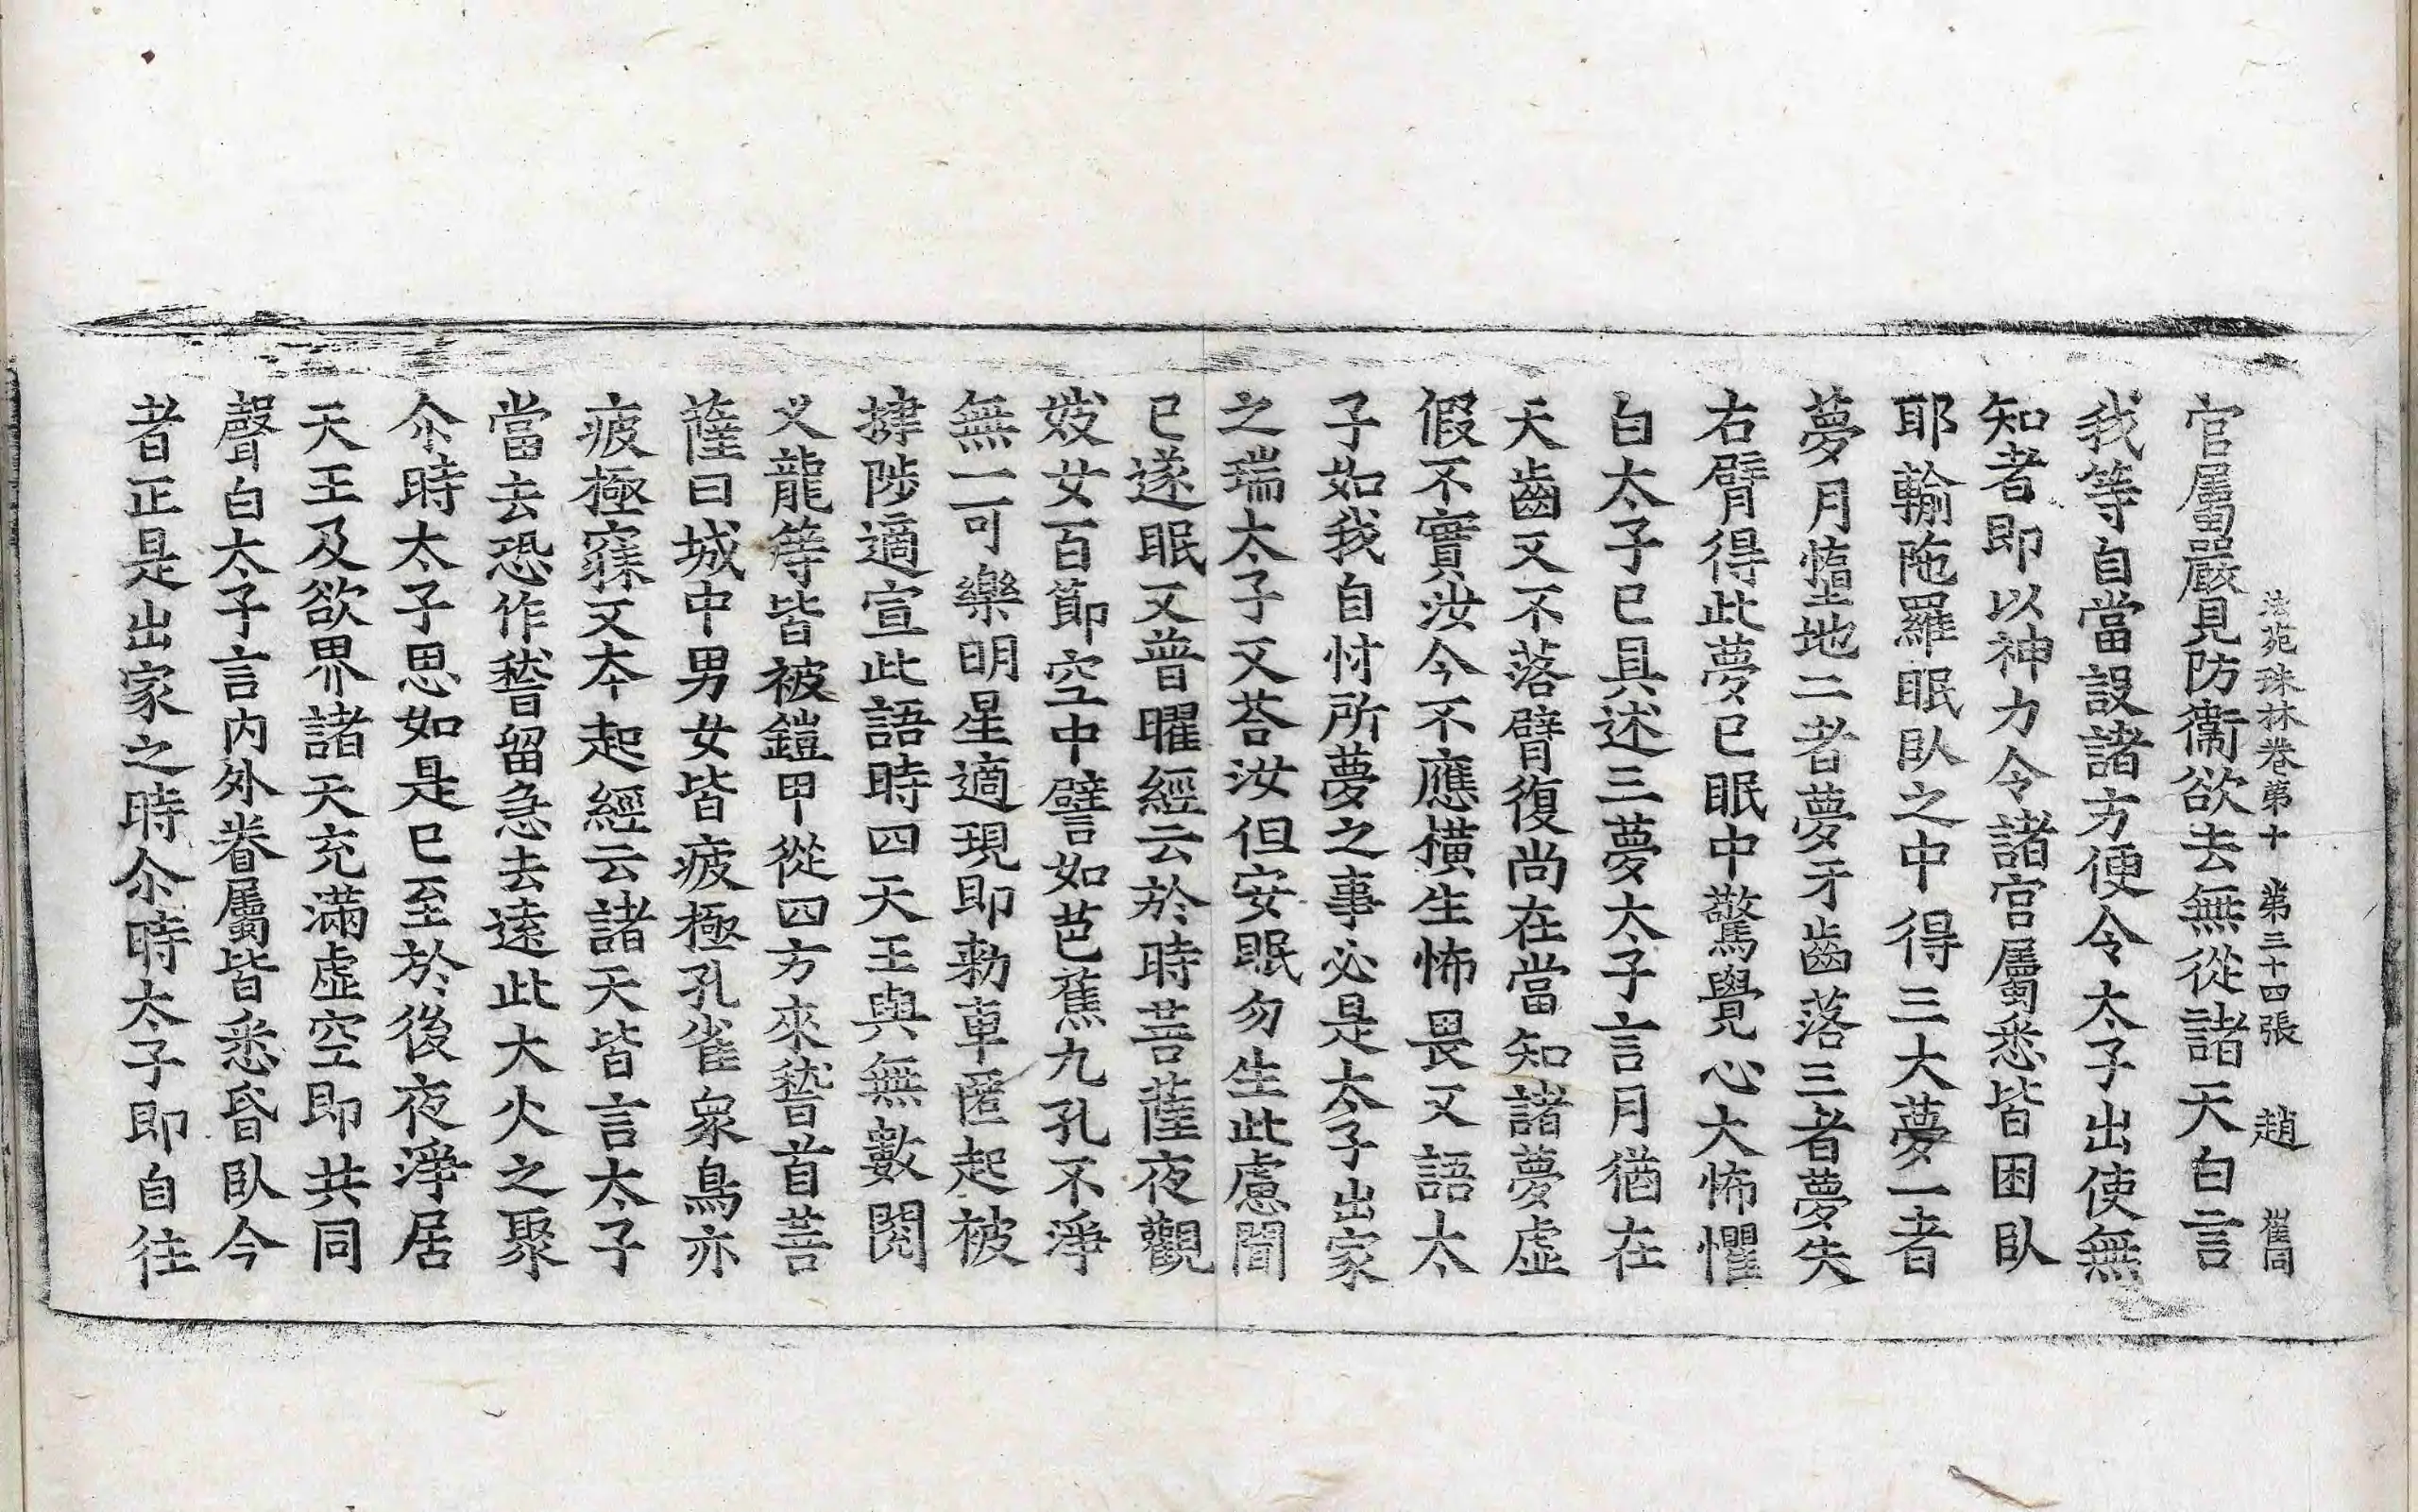 法苑珠林卷第十 第三十四張 趙 崔同
官屬嚴見防衛欲去無從諸天白言
我等自當設諸方便令太子出使無
知者即以神力令諸官屬悉皆困臥
耶輸陁羅眠臥之中得三大夢一者
夢月墮地二者夢牙齒落三者夢失
右臂得此夢已眠中驚覺心大怖懼
白太子已具述三夢太子言月猶在
天齒又不落臂復尚在當知諸夢虛
假不實汝今不應橫生怖畏又語太
子如我自忖所夢之事必是太子出家
之瑞太子又荅汝但安眠勿生此慮聞
已遂眠又普曜經云於時菩薩夜觀
妓女百節空中譬如芭蕉九孔不淨
無一可樂明星適現即勑車匿起被
揵陟適宣此語時四天王與無數閱
叉龍等皆被鎧甲從四方來稽首菩
薩曰城中男女皆疲極孔雀衆鳥亦
疲極寐又夲起經云諸天皆言太子
當去恐作稽留急去遠此大火之聚
尒時太子思如是已至於後夜淨居
天王及欲界諸天充滿虛空即共同
聲白太子言內外眷屬皆悉昏臥今
者正是出家之時尒時太子即自往